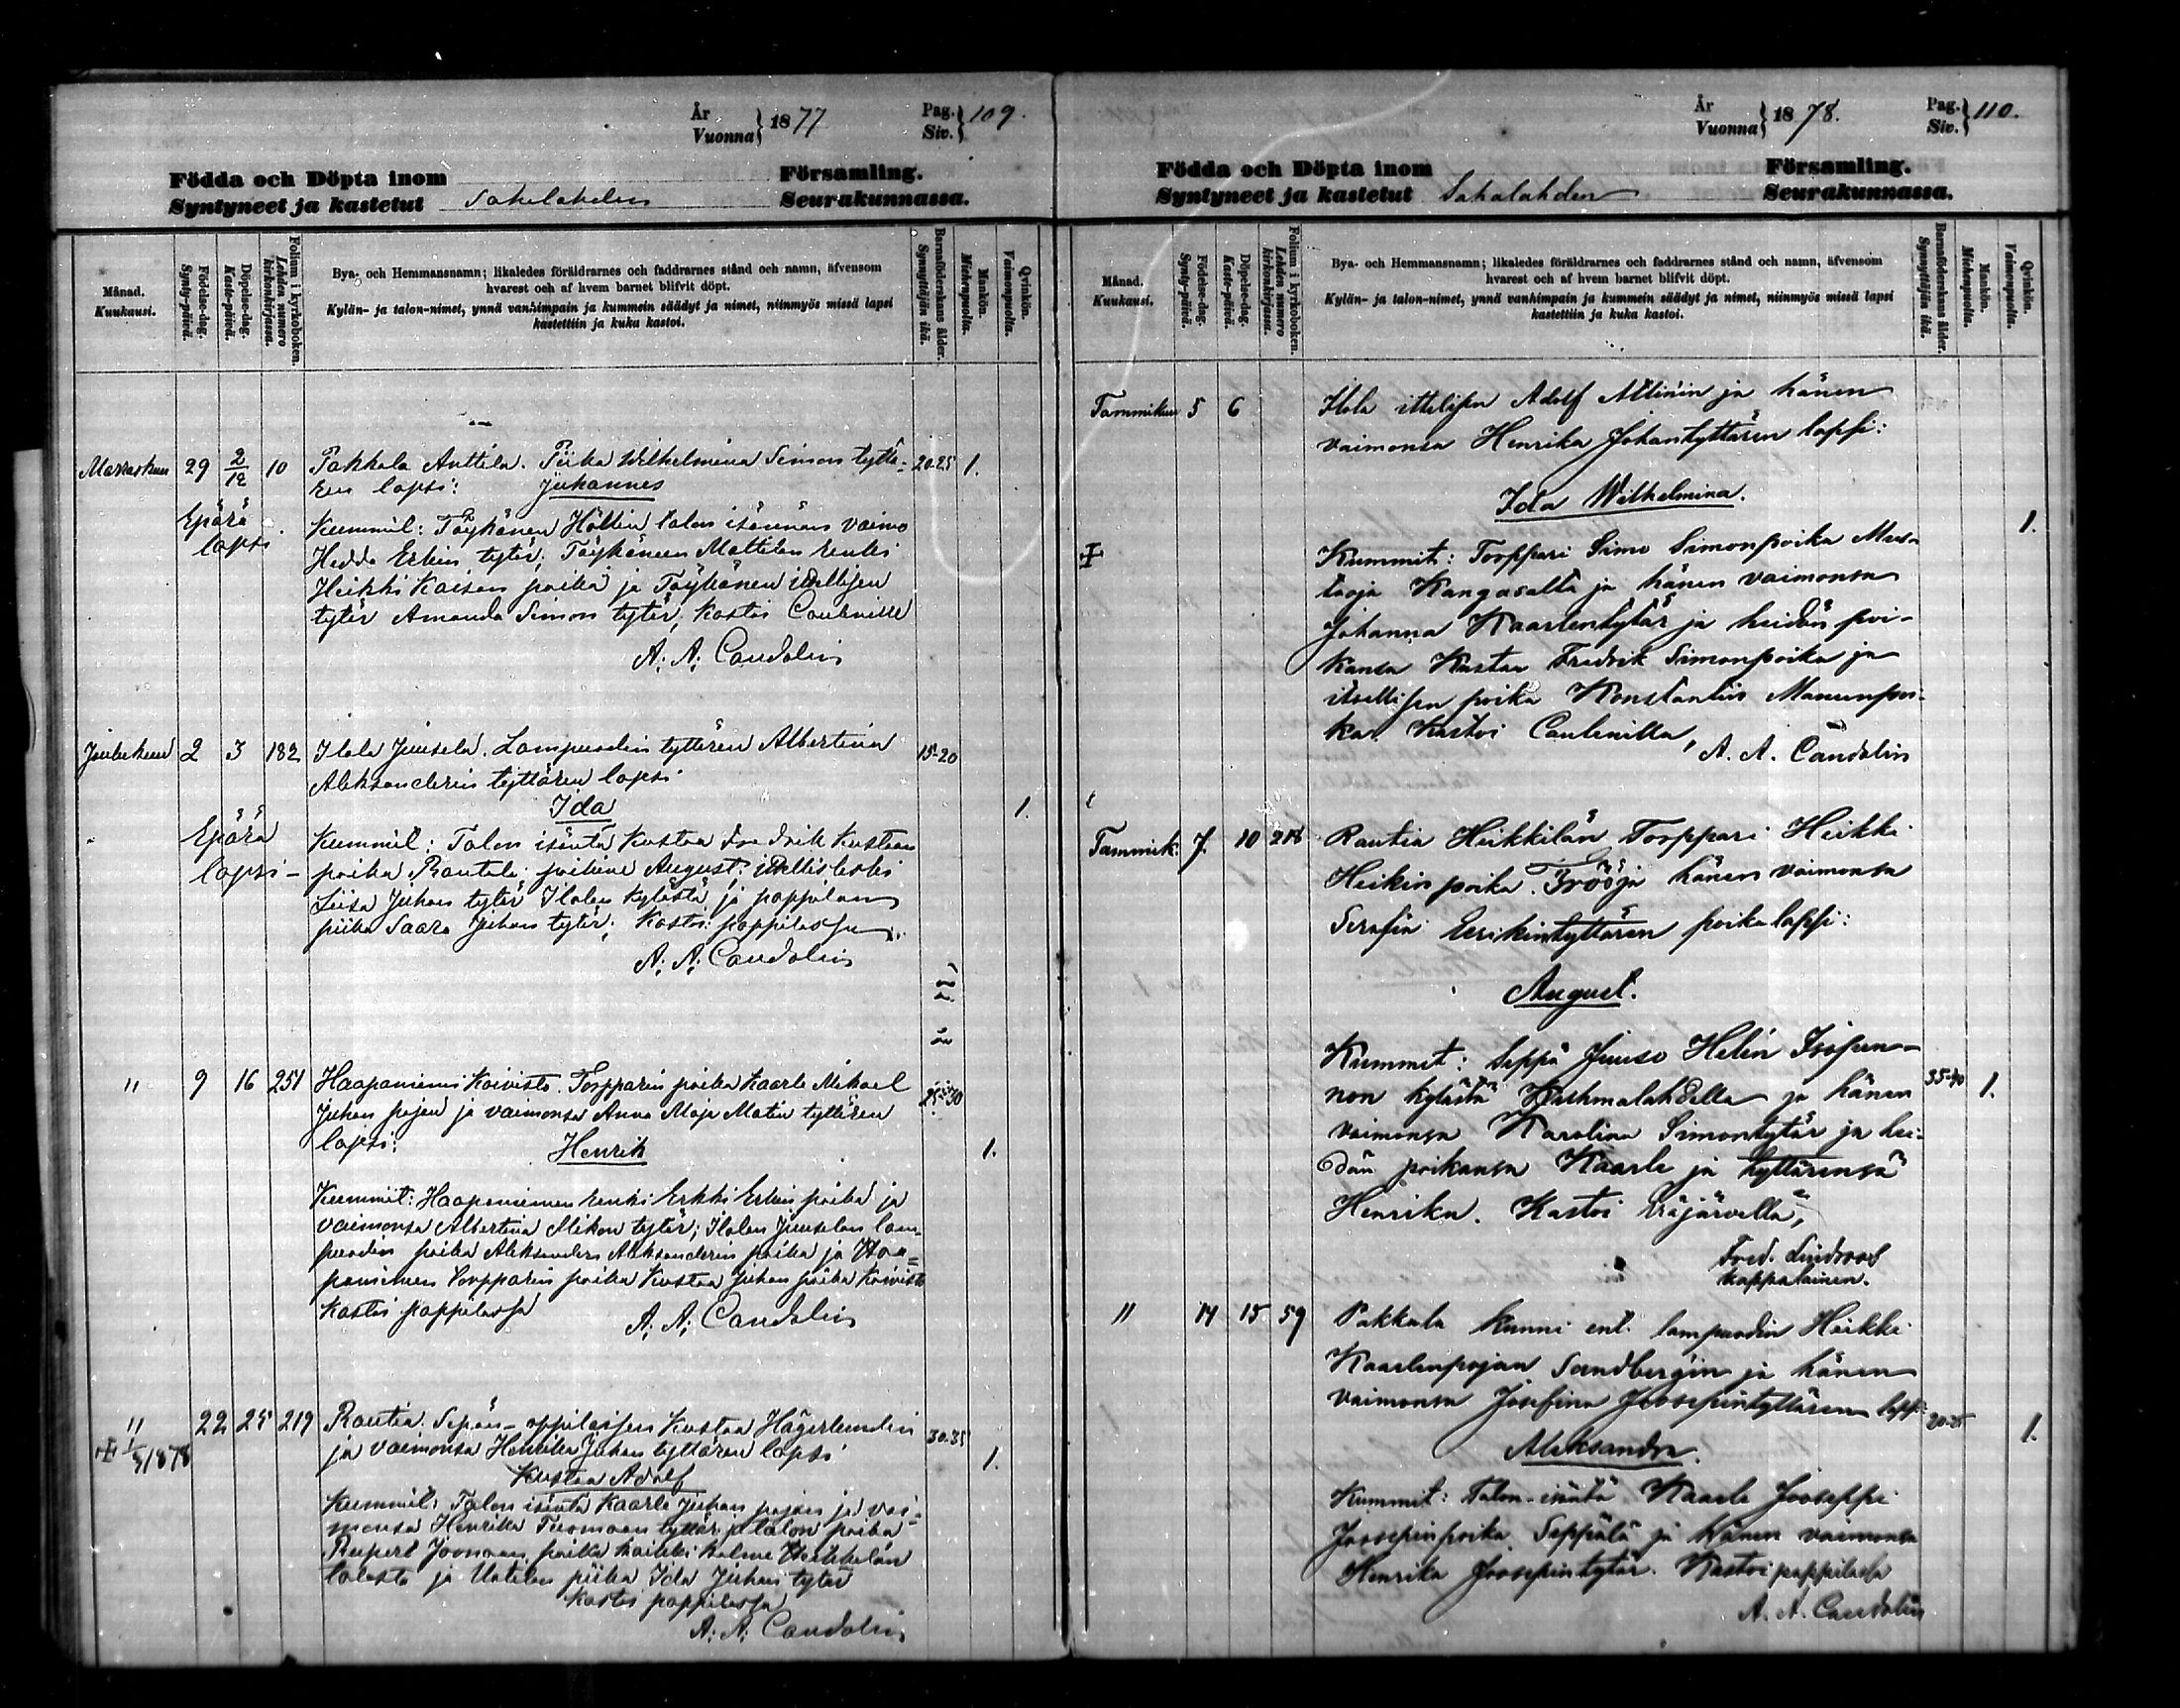 År
Vuonna } 1877
Pag.
Siv. } 109.
Födda och Döpta inom Församling.
Syntyneet ja kastetut Sahalahden Seurakunnassa.
Månad.
Kuukausi.
Födelse-dag.
Synty-päivä.
Döpelse-dag.
Kaste-päivä.
Folium i kyrkoboken.
Lehden numero kirkonkirjassa.
Bya- och Hemmansnamn; likaledes föräldrarnes och faddrarnes stånd och namn, äfvensom
hvarest och af hvem barnet blifvit döpt.
Kylän- ja talon-nimet, ynnä vanhimpain ja kummein säädyt ja nimet, niinmyös missä lapsi
kastettiin ja kuka kastoi.
Barnaföderskans ålder.
Synnyttäjän ikä.
Mankön.
Miehenpuolta.
Qvinkön.
Vaimonpuolta.
Marraskuu 29 2/12 10 Pakkala Anttila. Piika Wilhelmina Simon tyttä= 20-25 1.
ren lapsi: Juhannes
Epärä
lapsi
Kummit: Töykänen Höltin talon isännän vaimo
Hedda Erkin tytär; Töykänen Mattilan renki
Heikki Kaisan poika ja Töykänen itellisen
tytär Amanda Simon tytär; kastoi
A. A. Candolin
Joulukuu 2 3 182 Ilola Juusela. Lampuodin tyttären Albertina 15-20
Aleksanderin tyttären lapsi
Ida 1.
Epärä
lapsi-
Kummit: Talon isäntä Kustaa Fredrik Kustaan
poika Rautala; August; itellis leski
Liisa Juhan tytär Ilolan kylästä ja pappilan
piika Saara Juhan tytär; Kastoi pappilassa
A. A. Candolin
" 9 16 251 Haapaniemi Koivisto. Torpparin poika Kaarle Mikael 25-30
Juhan pojan ja vaimonsa Anna Maja Matin tyttären
lapsi: Henrik 1.
Kummit: Haapaniemen renki Erkki Erkin poika ja
vaimonsa Albertina Mikon tytär; Ilolan Juuselan lam-
puodin poika Aleksander Aleksanderin poika ja Haa=
paniemen torpparin poika Kustaa Juhan poika Koivisto
Kastoi pappilassa A. A. Candolin
" 22 25 219 Rautia. Sepän-oppilaisen Kustaa Hägerlundin 30-35
1/3 1878 ja vaimonsa Henrika Juhan tyttären lapsi 1.
Kustaa Adolf
Kummit: Talon isäntä Kaarle Juhan pojan ja vai=
monsa Henrika Tuomaan tytär ja talon poika
Rupert Joonaan poika kaikki kolme Heikkilän
talosta ja Uotilan piika Ida Juhan tytär
Kastoi pappilassa
A. A. Candolin
År
Vuonna } 1878.
Pag.
Siv. } 110.
Födda och Döpta inom Församling.
Syntyneet ja kastetut Sahalahden Seurakunnassa.
Månad.
Kuukausi.
Födelse-dag.
Synty-päivä.
Döpelse-dag.
Kaste-päivä.
Folium i kyrkoboken.
Lehden numero kirkonkirjassa.
Bya- och Hemmansnamn; likaledes föräldrarnes och faddrarnes stånd och namn, äfvensom
hvarest och af hvem barnet blifvit döpt.
Kylän- ja talon-nimet, ynnä vanhimpain ja kummein säädyt ja nimet, niinmyös missä lapsi
kastettiin ja kuka kastoi.
Barnaföderskans ålder.
Synnyttäjän ikä.
Mankön.
Miehenpuolta.
Qvinkön.
Vaimonpuolta.
Tammikuu 5 6 Ilola ittelisen Adolf ja hänen
vaimonsa Henrika Johantyttären lapsi:
Ida Wilhelmina. 1.
Kummit: Torppari Simo Simonpoika
Kangasalta ja hänen vaimonsa
Johanna Kaarlentytär ja heidän poi-
kansa Kustaa Fredrik Simonpoika ja
itsellisen poika Konstantin Manunpoi-
ka. Kastoi
A. A. Candolin
Tammik. 7. 10 Rautia Heikkilän Torppari Heikki
Heikinpoika Frööjn hänen vaimonsa
Serafia Eerikintyttären poikalapsi:
August.
Kummit: Seppä Juuso Helin Isosen-
non kylästä Kuhmalahdella ja hänen 35-40 1.
vaimonsa Karolina Simontytär ja hei-
dän poikansa Kaarle ja tyttärensä
Henrika. Kastoi Eräjärvellä,
Fred. Lindroos
kappalainen.
" 14 15 59 Pakkala Kunni ent. lampuodin Heikki
Kaarlenpojan Sandbergin ja hänen
vaimonsa Josefina Joosepintyttären lapsi: 20-25
Aleksandra. 1.
Kummit: Talon-isäntä Kaarle Jooseppi
Joosepinpoika Seppälä ja hänen vaimonsa
Henrika Joosepintytär. Kastoi pappilassa
A. A. Candolin